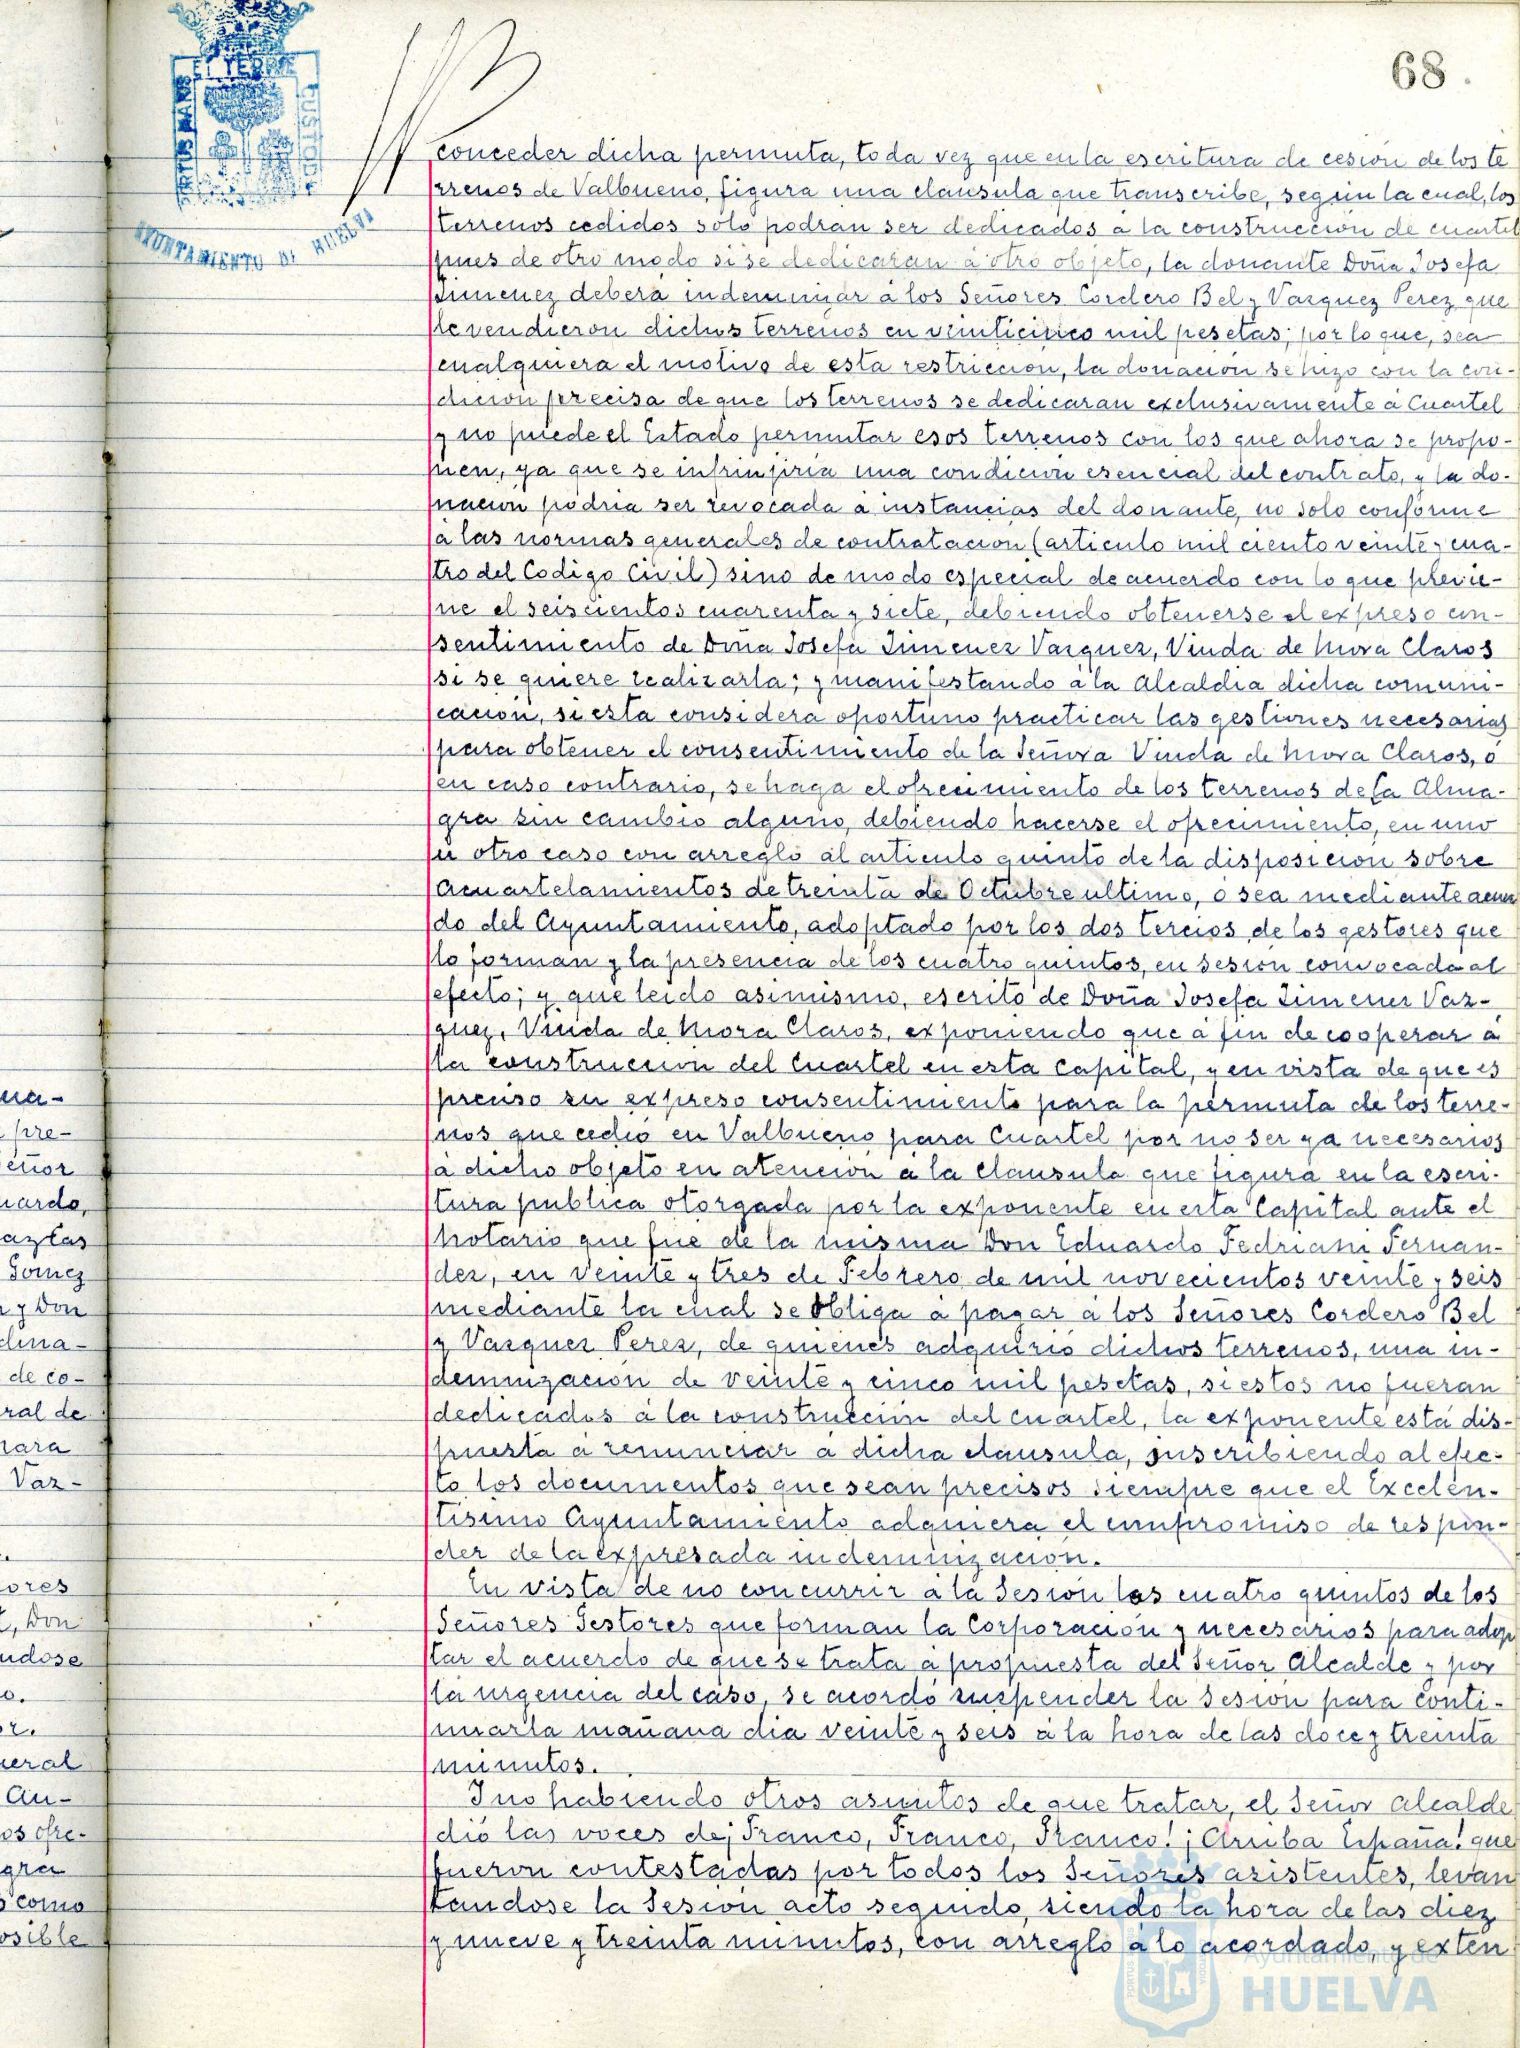 68
ET TERRE
CUSTODIA
AYUNTAMIENTO DE HUELVA
conceder dicha permuta, toda vez que en la escritura de cesión de los te
rrenos de Valbueno, figura una clausula que transcribe, según la cual, los
terrenos cedidos sólo podran ser dedicados a la construcción de cuartel
pues de otro modo si se dedicaran a otro objeto, la donante Doña Josefa
Jimenez deberá indemnizar á los Señores Cordero Bel y Vazquez Perez que
le vendieron dichos terrenos en veinticinco mil pesetas; por lo que, sea
cualquiera el motivo de esta restriccion, la donación se hizo con la con-
dicion precisa de que los terrenos se dedicaran exclusivamente a Cuartel
y no puede el Estado permutar esos terrenos con los que ahora se propo-
nen, ya que se infrinjiria una condición esencial del contrato, y la do-
nacion podria ser revocada a instancias del donante, no solo conforme
á las normas generales de contratacion (articulo mil ciento veinte y cua-
tro del Codigo Civil) sino de modo especial de acuerdo con lo que previe-
ne el seiscientos cuarenta y siete, debiendo obtenerse el expreso con-
sentimiento de Doña Josefa Jimenez Vazquez, Viuda de Mora Claros
si se quiere realizarla; y manifestando a la Alcaldia dicha comuni-
cación, si esta considera oportuno practicar las gestiones necesarias
para obtener el consentimiento de la Señora Viuda de Mora Claros, ó
en caso contrario, se haga el ofrecimiento de los terrenos de la Alma-
gra sin cambio alguno, debiendo hacerse el ofrecimiento, en uno
u otro caso con arreglo al articulo quinto de la disposicion sobre
Acuartelamientos de treinta de Octubre ultimo, ó sea mediante acuer
do del Ayuntamiento, adoptado por los dos tercios de los gestores que
lo forman y la presencia de los cuatro quintos, en sesion convocada al
efecto; y que leido asimismo, escrito de Doña Josefa Jimenez Vaz-
quez, Viuda de Mora Claros, exponiendo que á fin de cooperar á
la construccion del Cuartel en esta Capital, y en vista de que es
preciso su expreso consentimiento para la permuta de los terre-
nos que cedió en Valbueno para Cuartel por no ser ya necesarios
á dicho objeto en atención á la Clausula que figura en la escri-
tura publica otorgada por la exponente en esta Capital ante el
Notario que fue de la misma Don Eduardo Fedriani Fernan-
dez, en veinte y tres de Febrero de mil novecientos veinte y seis
mediante la cual se obliga a pagar á los Señores Cordero Bel
y Vazquez Perez, de quienes adquirió dichos terrenos, una in-
demnización de veinte y cinco mil pesetas, si estos no fueran
dedicados á la construcción del cuartel, la exponente está dis-
puesta a renunciar a dicha clausula, suscribiendo al efec-
to los documentos que sean precisos siempre que el Excelen-
tisimo Ayuntamiento adquiera el compromiso de respon-
der de la expresada indemnizacion.
En vista de no concurrir a la Sesión los cuatro quintos de los
Señores Gestores que forman la Corporación y necesarios para adop
tar el acuerdo de que se trata a propuesta del Señor Alcalde y por
la urgencia del caso, se acordó suspender la Sesión para conti-
nuarla mañana dia veinte y seis á la hora de las doce y treinta
minutos.
Y no habiendo otros asuntos de que tratar, el Señor Alcalde
dió las voces de ¡Franco, Franco, Franco! ¡Arriba España! que
fueron contestadas por todos los Señores asistentes, levan
tandose la Sesión acto seguido, siendo la hora de las diez
y nueve y treinta minutos, con arreglo á lo acordado, y exten
pre-
eñor
uardo,
Gomez
n y Don
dina-
de co-
ral de
Vaz-
ores
Don
ndose
neral
au-
os ofre-
gra
como
osible
Ayuntamiento de
HUELVA